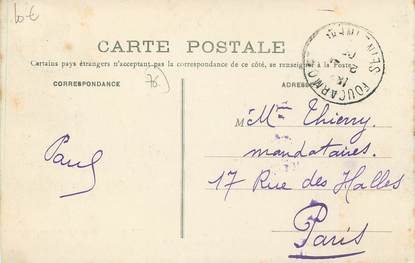 10 €
CARTE POSTALE
Certains pays étrangers n'acceptant pas la correspondance de ce côté, se renseigner à la Poste
CORRESPONDANCE
76.)
ADRESSE
FOUCARMONT
SEINE INFRE
M Thierry
mandataires.
Paul
17 Rue des Halles
Paris